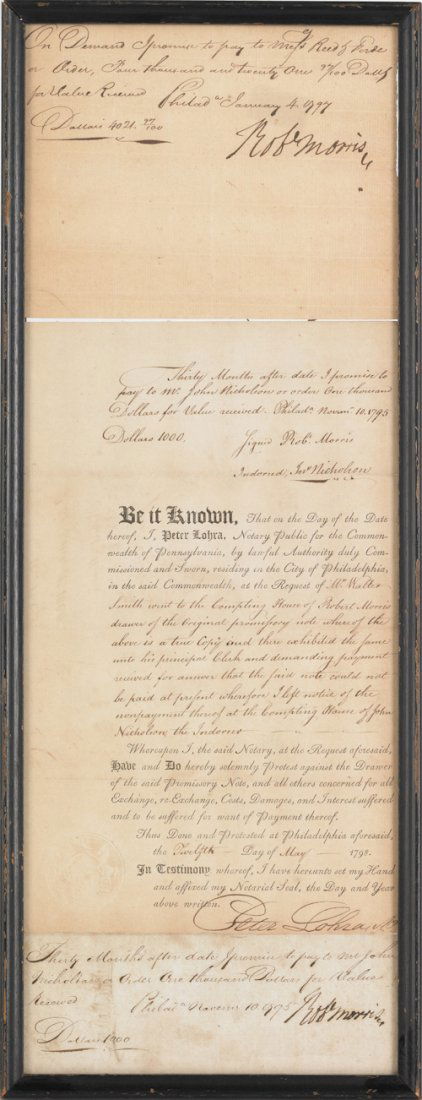 On Demand I promise to pay to Messrs Reed & Forde
or Order, Four thousand and twenty One 27/100 Dolls
for Value Received
Philada January 4. 1797
Dollars 4021. 27/100
Robt Morris
Thirty Months after date I promise to
pay to Mr. John Nicholson or order One thousand
Dollars for Value received. Philada Novemr. 10. 1795
Dollars 1000. Signed Robt. Morris
Indorsed, Jno Nicholson
Be it Known, That on the Day of the Date
hereof, I, Peter Lohra, Notary Public for the Common-
wealth of Pennsylvania, by lawful Authority duly Com-
missioned and Sworn, residing in the City of Philadelphia,
in the said Commonwealth, at the Request of Mr. Walter
Smith went to the Compting House of Robert Morris
drawer of the Original promissory note where of the
above is a true Copy and there exhibited the same
unto his principal Clerk and demanding payment
received for answer that the said note could not
be paid at present wherefore I left notice of the
nonpayment thereof at the Compting House of John
Nicholson, the Indorser
Whereupon I, the said Notary, at the Request aforesaid,
Have and Do hereby solemnly Protest against the Drawer
of the said Promissory Note, and all others concerned for all
Exchange, re-Exchange, Costs, Damages, and Interest suffered
and to be suffered for want of Payment thereof.
Thus Done and Protested at Philadelphia aforesaid,
the Twelfth Day of May 1798.
In Testimony whereof, I have hereunto set my Hand
and affixed my Notarial Seal, the Day and Year
above written.
Peter Lohra
Thirty Months after date I promise to pay to Mr John
Nicholson or Order One thousand Dollars for Value
Received
Philada Novemr 10 1795 Robt Morris
Dollars 1000